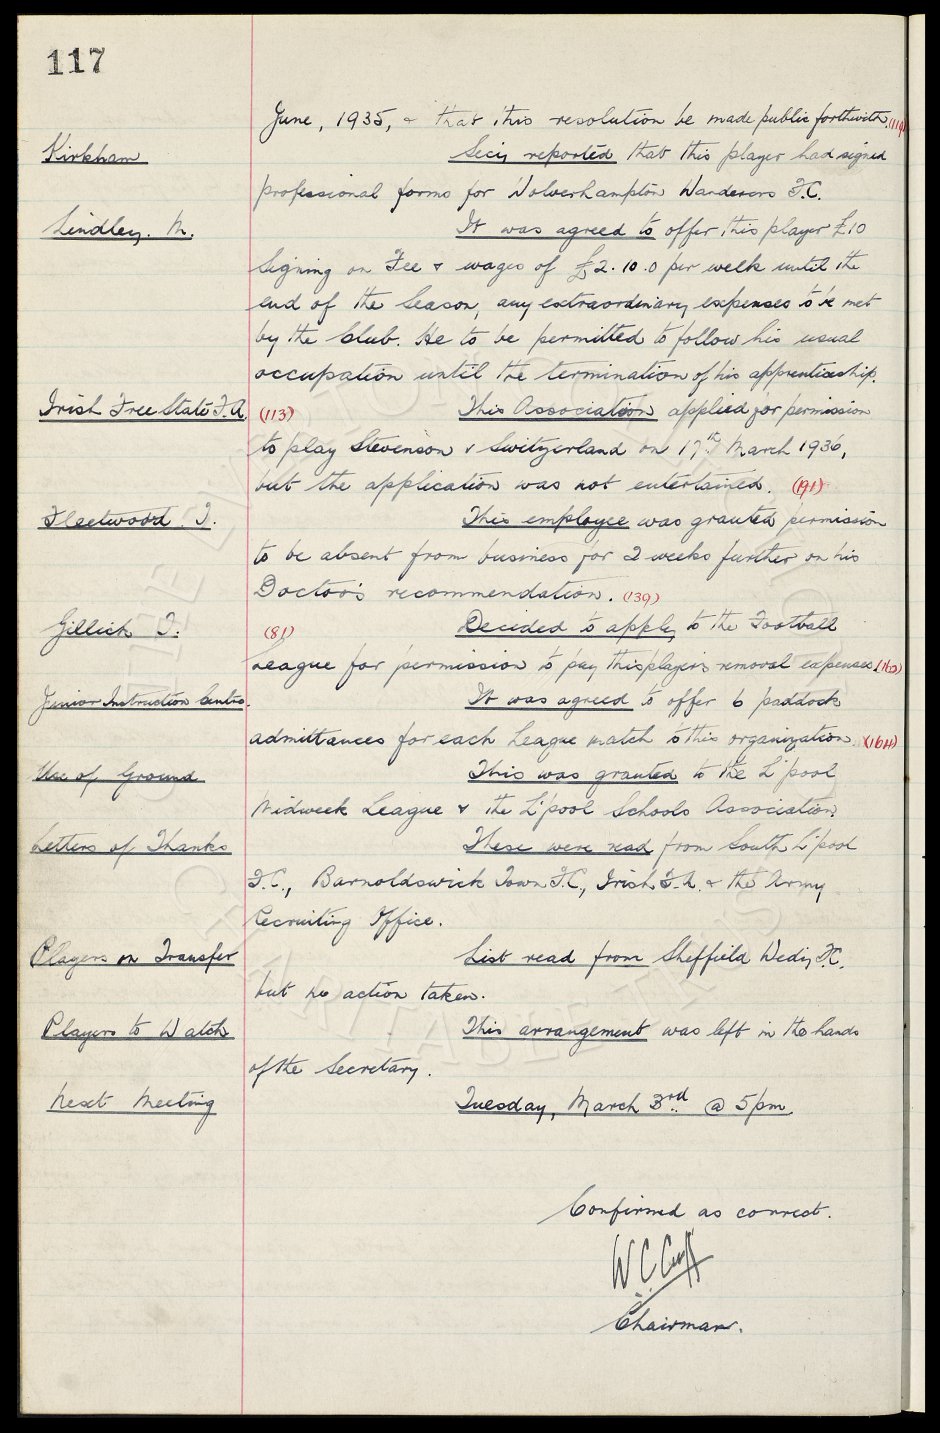 117
June, 1935, & that this resolution be made public forthwith. (119)
Kirkham Secy reported that this player had signed
professional forms for Wolverhampton Wanderers F.C.
Lindley. M. It was agreed to offer this player £10
signing on Fee & wages of £2.10.0 per week until the
end of the Season, any extraordinary expenses to be met
by the Club. He to be permitted to follow his usual
occupation until the termination of his apprenticeship.
Irish Free State F.A. (113) This Association applied for permission
to play Stevenson v Switzerland on 17th March 1936,
but the application was not entertained. (191)
Fleetwood. T. This employee was granted permission
to be absent from business for 2 weeks further on his
Doctor's recommendation. (139)
Gillick T. (81) Decided to apply to the Football
League for permission to pay this player's removal expenses. (160)
Junior Instruction Centre. It was agreed to offer 6 paddock
admittances for each League match to this organization. (164)
Use of Ground This was granted to the L'pool
Midweek League & the L'pool Schools Association.
Letters of Thanks These were read from South L'pool
F.C., Barnoldswick Town F.C., Irish F.A. & the Army
Recruiting Office.
Players on Transfer List read from Sheffield Wedy F.C.
but no action taken.
Players to Watch This arrangement was left in the hands
of the Secretary.
Next Meeting Tuesday, March 3rd @ 5pm.
Confirmed as correct.
W.C. Cuff
Chairman.
THE EVERTON COLLECTION
CHARITABLE TRUST